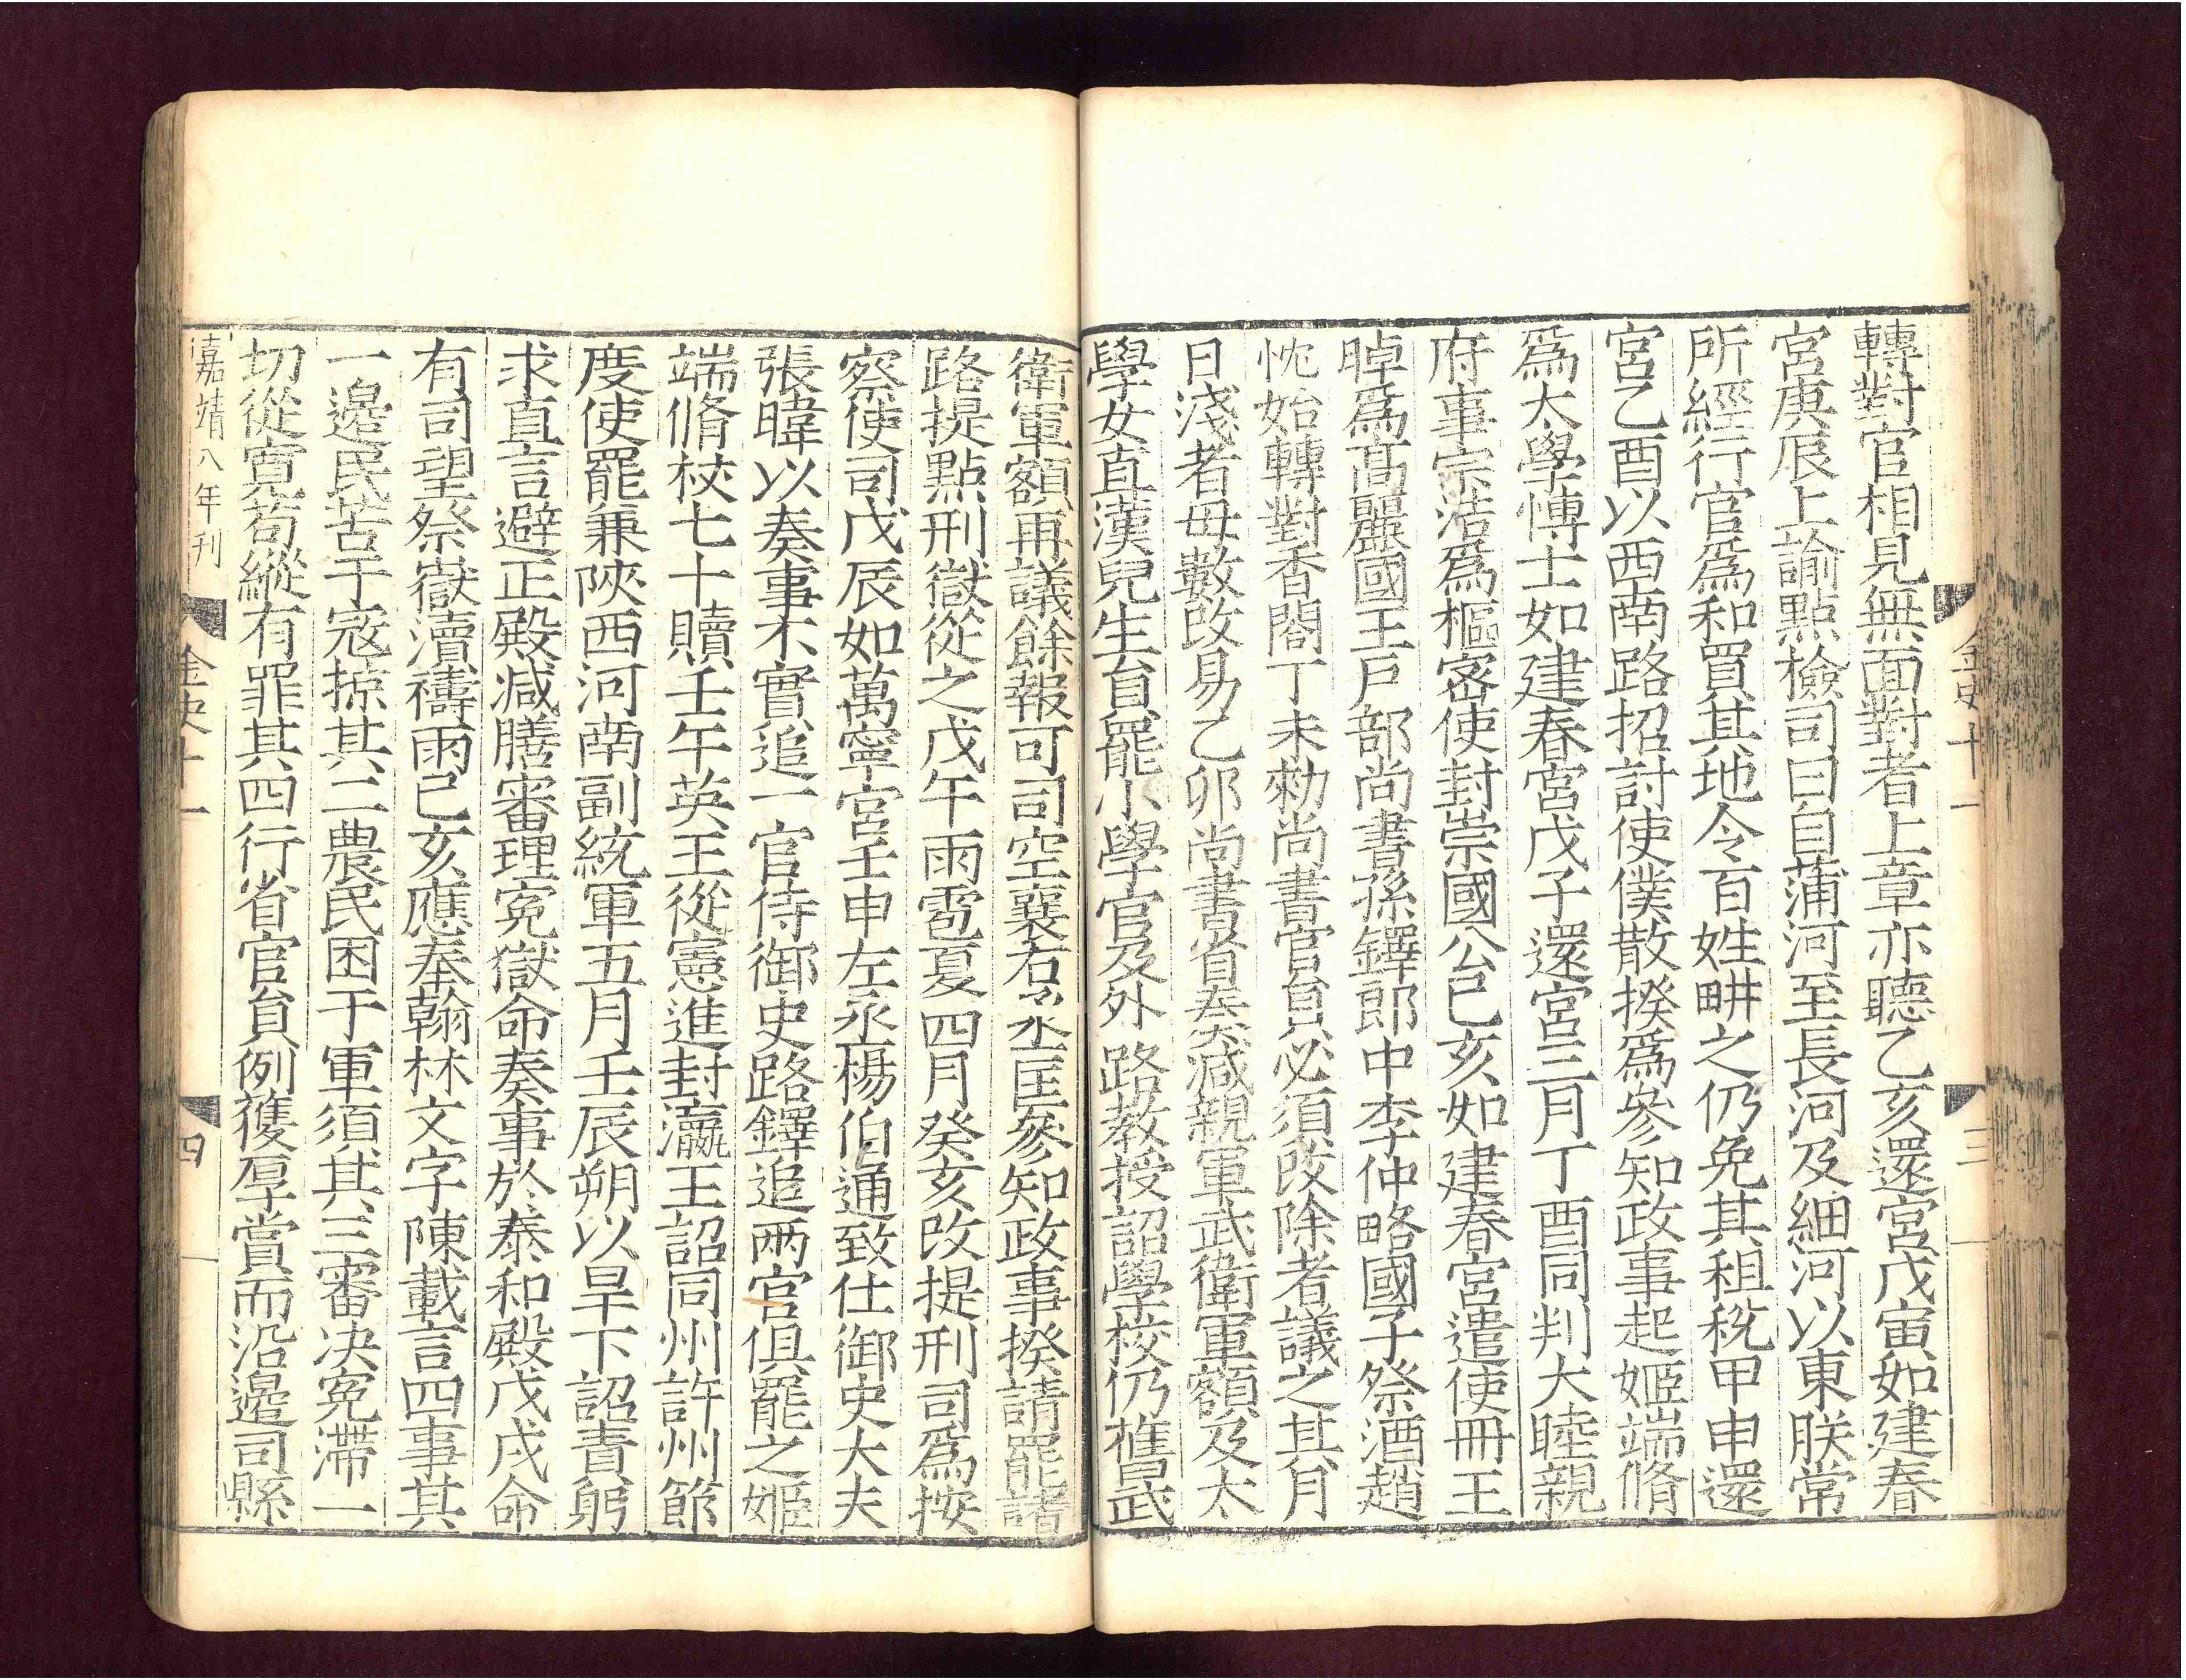 轉對官相見無面對者上章亦聽乙亥還宮戊寅如建春
宮庚辰上諭點檢司曰自蒲河至長河及細河以東朕常
所經行官爲和買其地令百姓畊之仍免其租稅甲申還
宮乙酉以西南路招討使僕散揆爲參知政事起姬端脩
爲太學愽士如建春宮戊子還宮三月丁酉同判大睦親
府事宗浩爲樞密使封崇國公己亥如建春宮遣使冊王
晫爲髙麗國王戸部尚書孫鐸郎中李仲略國子祭酒趙
忱始轉對香閤丁未勑尚書官員必須改除者議之其月
日淺者毋數改易乙卯尚書省奏减親軍武衛軍額及太
學女直漢兒生員罷小學官及外路教授詔學校仍舊武
衛軍額再議餘報可司空襄右丞匡參知政事揆請罷諸
路提點刑獄從之戊午雨雹夏四月癸亥改提刑司爲按
察使司戊辰如萬寧宮壬申左丞楊伯通致仕御史大夫
張暐以奏事不實追一官侍御史路鐸追两官俱罷之姬
端脩杖七十贖壬午英王從憲進封瀛王詔同州許州節
度使罷兼陝西河南副統軍五月壬辰朔以旱下詔責躬
求直言避正殿减膳審理冤獄命奏事於泰和殿戊戌命
有司望祭嶽瀆禱雨己亥應奉翰林文字陳載言四事其
一邉民苦于寇掠其二農民困于軍須其三審决冤滯一
切從寬苟縱有罪其四行省官員例獲厚賞而沿邉司縣
嘉靖八年刊
金史十一
四
金史十一
三